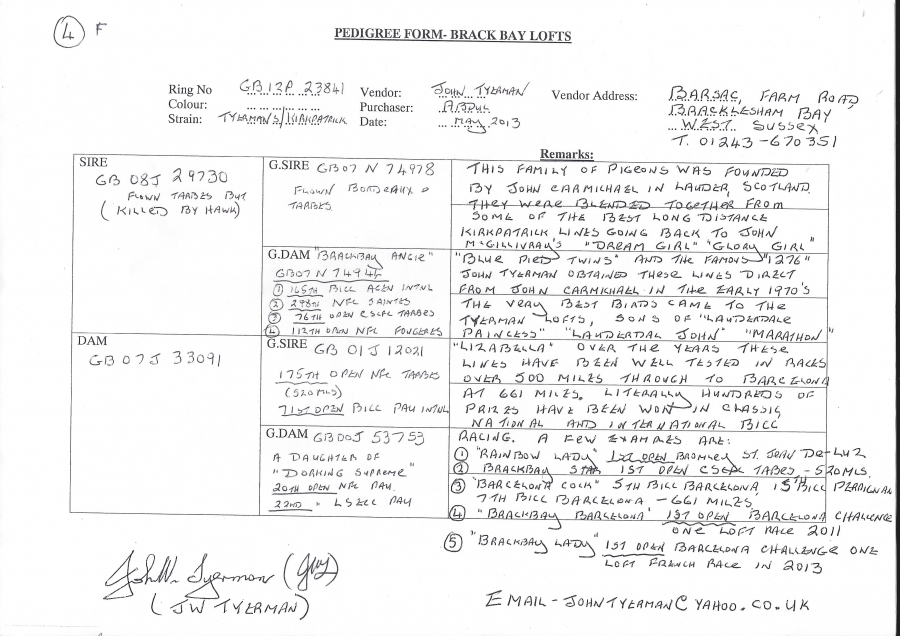 4 F
PEDIGREE FORM- BRACK BAY LOFTS
Ring No GB 12P 23841
Colour: ... ... ... ... ... ...
Strain: TYERMAN'S/KIRKPATRICK
Vendor: JOHN TYERMAN
Purchaser: ABDUL
Date: MAY 2013
Vendor Address: BARSAC, FARM ROAD
BRACKLESHAM BAY
WEST SUSSEX
T. 01243-670351
SIRE
GB 08J 29730
FLOWN TARBES BUT
(KILLED BY HAWK)
G.SIRE GB07 N 74978
FLOWN BORDEAUX &
TARBES
G.DAM "BRACKBAY ANGIE"
GB07 N 74945
① 165TH BILL AGEN INTNL
② 298TH NFC SAINTES
③ 76TH OPEN CSCFC TARBES
④ 112TH OPEN NFC FOUGERES
DAM
GB 07J 33091
G.SIRE GB 01J 12021
175TH OPEN NFC TARBES
(520 MLS)
71ST OPEN BILL PAU INTNL
G.DAM GB 00J 53753
A DAUGHTER OF
"DORKING SUPREME"
20TH OPEN NFC PAU
22ND " LSECC PAU
Remarks:
THIS FAMILY OF PIGEONS WAS FOUNDED
BY JOHN CARMICHAEL IN LAUDER, SCOTLAND.
THEY WERE BLENDED TOGETHER FROM
SOME OF THE BEST LONG DISTANCE
KIRKPATRICK LINES GOING BACK TO JOHN
McGILLIVRAY'S "DREAM GIRL" "GLORY GIRL"
"BLUE PIED TWINS" AND THE FAMOUS "1276"
JOHN TYERMAN OBTAINED THESE LINES DIRECT
FROM JOHN CARMICHAEL IN THE EARLY 1970'S
THE VERY BEST BIRDS CAME TO THE
TYERMAN LOFTS, SONS OF "LAUDERDALE
PRINCESS" "LAUDERDAL JOHN" "MARATHON"
"LIZABELLA" OVER THE YEARS THESE
LINES HAVE BEEN WELL TESTED IN RACES
OVER 500 MILES THROUGH TO BARCELONA
AT 661 MILES. LITERALLY HUNDREDS OF
PRIZES HAVE BEEN WON IN CLASSIC
NATIONAL AND INTERNATIONAL BILL
RACING. A FEW EXAMPLES ARE:
① "RAINBOW LADY" 1ST OPEN BROMLEY ST. JOAN DE-LUZ
② BRACKBAY STAR 1ST OPEN CSCFC TABES - 520 MLS.
③ "BARCELONA COCK" 5TH BILL BARCELONA 15TH BILL PERRIGNAN
7TH BILL BARCELONA - 661 MILES
④ "BRACKBAY BARCELONA" 1ST OPEN BARCELONA CHALLENGE
ONE LOFT RACE 2011
⑤ "BRACKBAY LADY" 1ST OPEN BARCELONA CHALLENGE ONE
LOFT FRENCH RACE IN 2013
John W. Tyerman
(JW TYERMAN)
EMAIL - JOHNTYERMAN@YAHOO.CO.UK